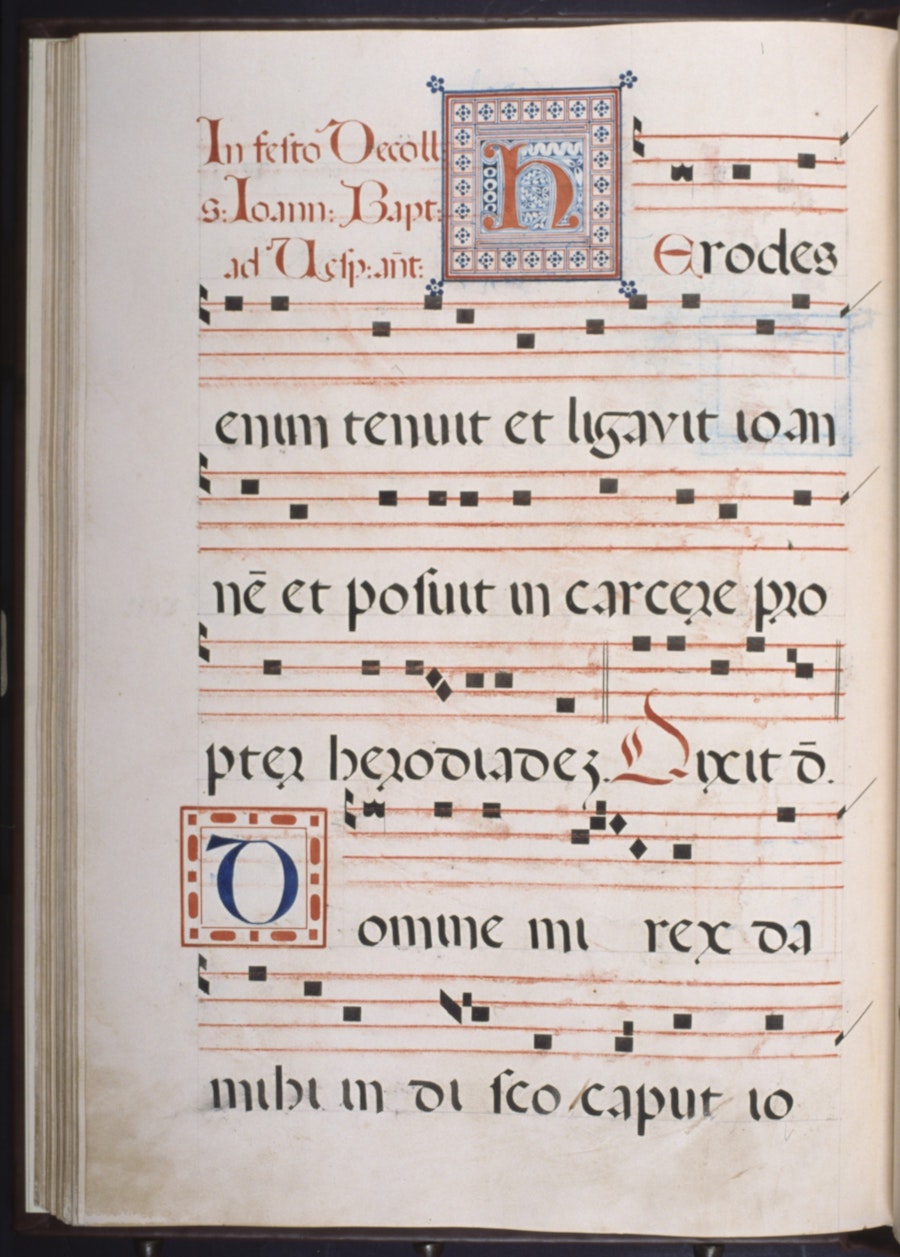 In festo Decoll
s: Ioann: Bapt:
ad Vesp: añt:
hErodes
enim tenuit et ligavit ioan
nē et posuit in carcere pro
pter herodiadez. Dixit D̄.
Domine mi rex da
mihi in disco caput io